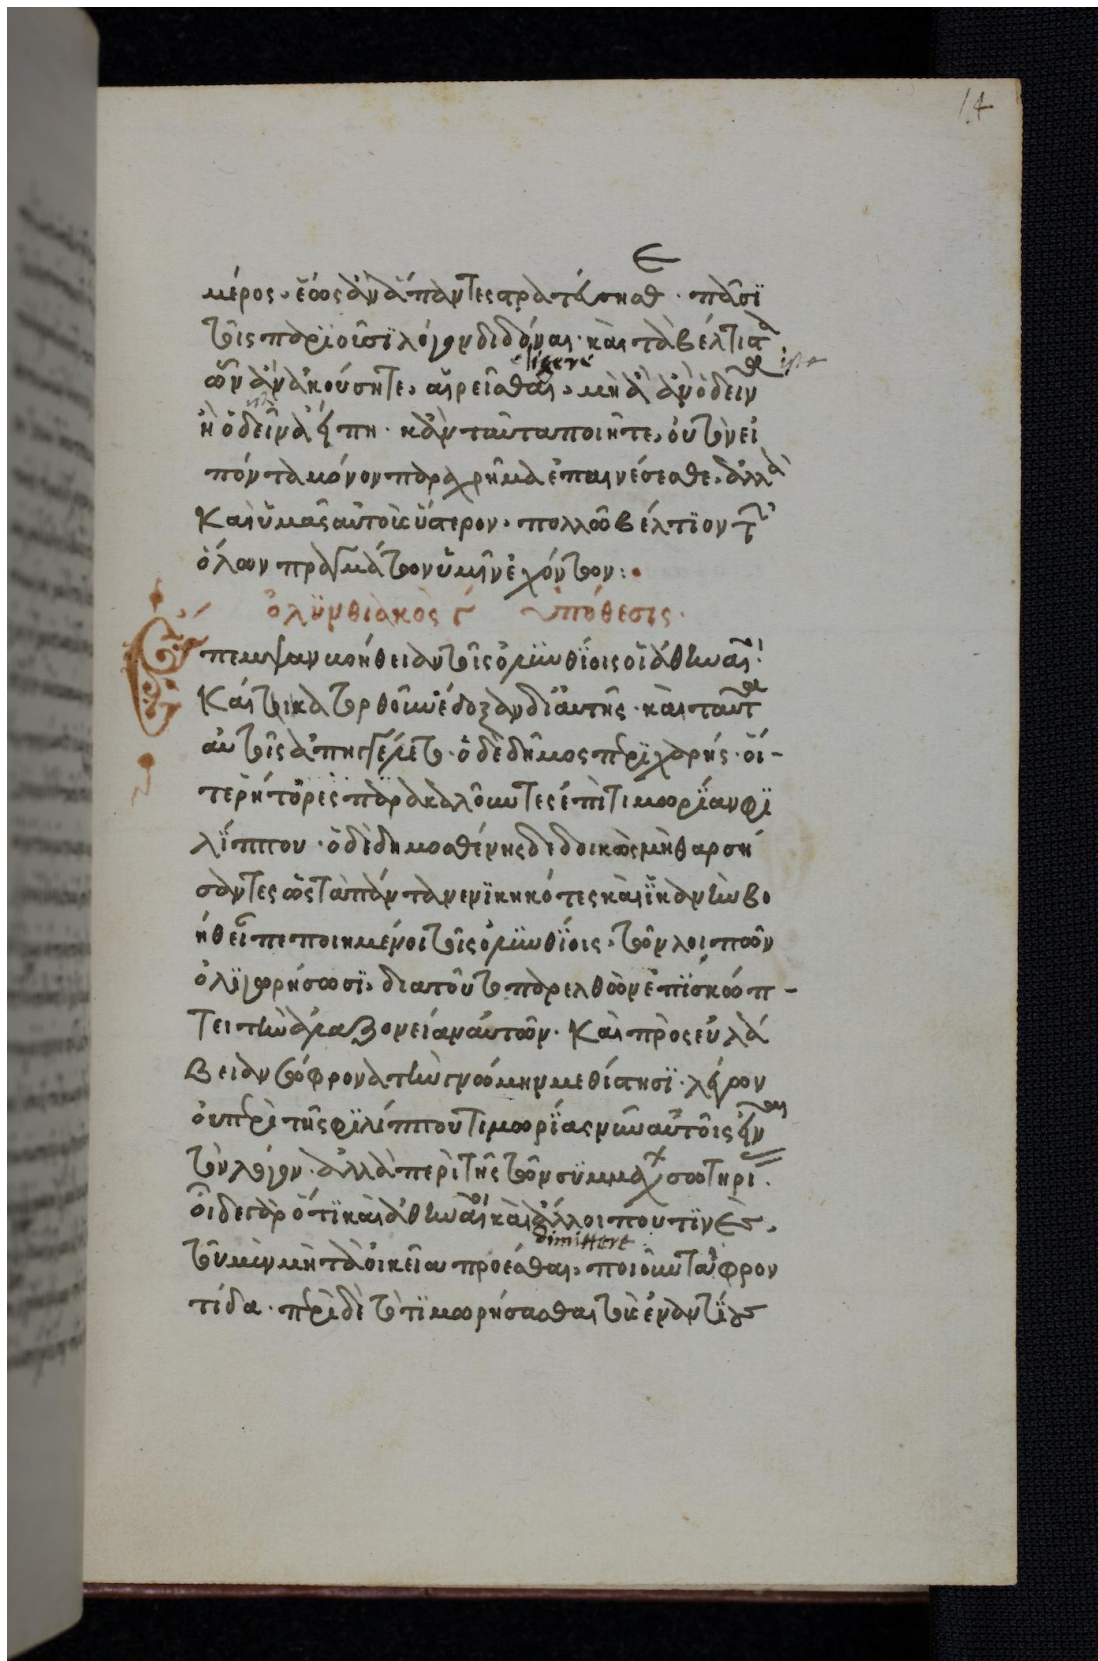 14
ε
μέρος. ἕως ἂν ἅπαντες στρατεύσησθε. πᾶσϊ
τοῖς παριοῦσϊ λόγον διδόναι. καὶ τὰ βέλτιστα
eligere
ὧν ἂν ἀκούσητε, αἱρεῖσθαι, μὴ ἃ ἂν ὁ δεῖν
ἢ ὁ δεῖνα εἴπη. κἂν ταῦτα ποιῆτε, οὐ τὸν εἰ
πόντα μόνον παραχρῆμα ἐπαινέσεσθε, ἀλλὰ
καὶ ὑμᾶς αὐτοὺς ὕστερον, πολλῶ βέλτϊον τῶν
ὅλων πραγμάτων ὑμῖν ἐχόντων:
ὀλϋνθιακὸς γ ὑπόθεσις.
Ἔπεμψαν βοήθειαν τοῖς ὀλϋνθΐοις οἱ ἀθηναῖοι
καί τι κατορθοῦν ἔδοξαν δι' αὐτῆς. καὶ ταῦτα
αὐτοῖς ἀπηγγέλλετο. ὁ δὲ δῆμος περϊχαρής. οἵ-
τε ῥήτορες παρακαλοῦντες ἐπὶ τιμωρΐαν φϊ
λΐππου. ὁ δὲ δημοσθένης δεδοικὼς μὴ θαρσή
σαντες ὡς τὰ πάντα νενϊκηκότες καὶ ἱκανὴν βο
ήθειαν πεποιημένοι τοῖς ὀλϋνθΐοις, τῶν λοιπῶν
ὀλϊγωρήσωσϊ, διὰ τοῦτο παρελθὼν ἐπϊσκώπ-
τει τὴν ἀλαζονείαν αὐτῶν. καὶ πρὸς εὐλά
βειαν σώφρονα τὴν γνώμην μεθίστησϊ. λέγων
οὐ περὶ τῆς φϊλίππου τιμωρΐας νῦν αὐτοῖς εἶναι
τὸν λόγον. ἀλλὰ περὶ τῆς τῶν συμμάχων σωτηρί.
οἶδε γὰρ ὅτϊ καὶ ἀθηναῖοι καὶ ἄλλοι πού τϊνες,
dimittere
τοῦ μὲν μὴ τὰ οἰκεῖα προέσθαι, ποιοῦνται φρον
τίδα. περὶ δὲ τὸ τϊμωρήσασθαι τοὺς ἐναντΐους